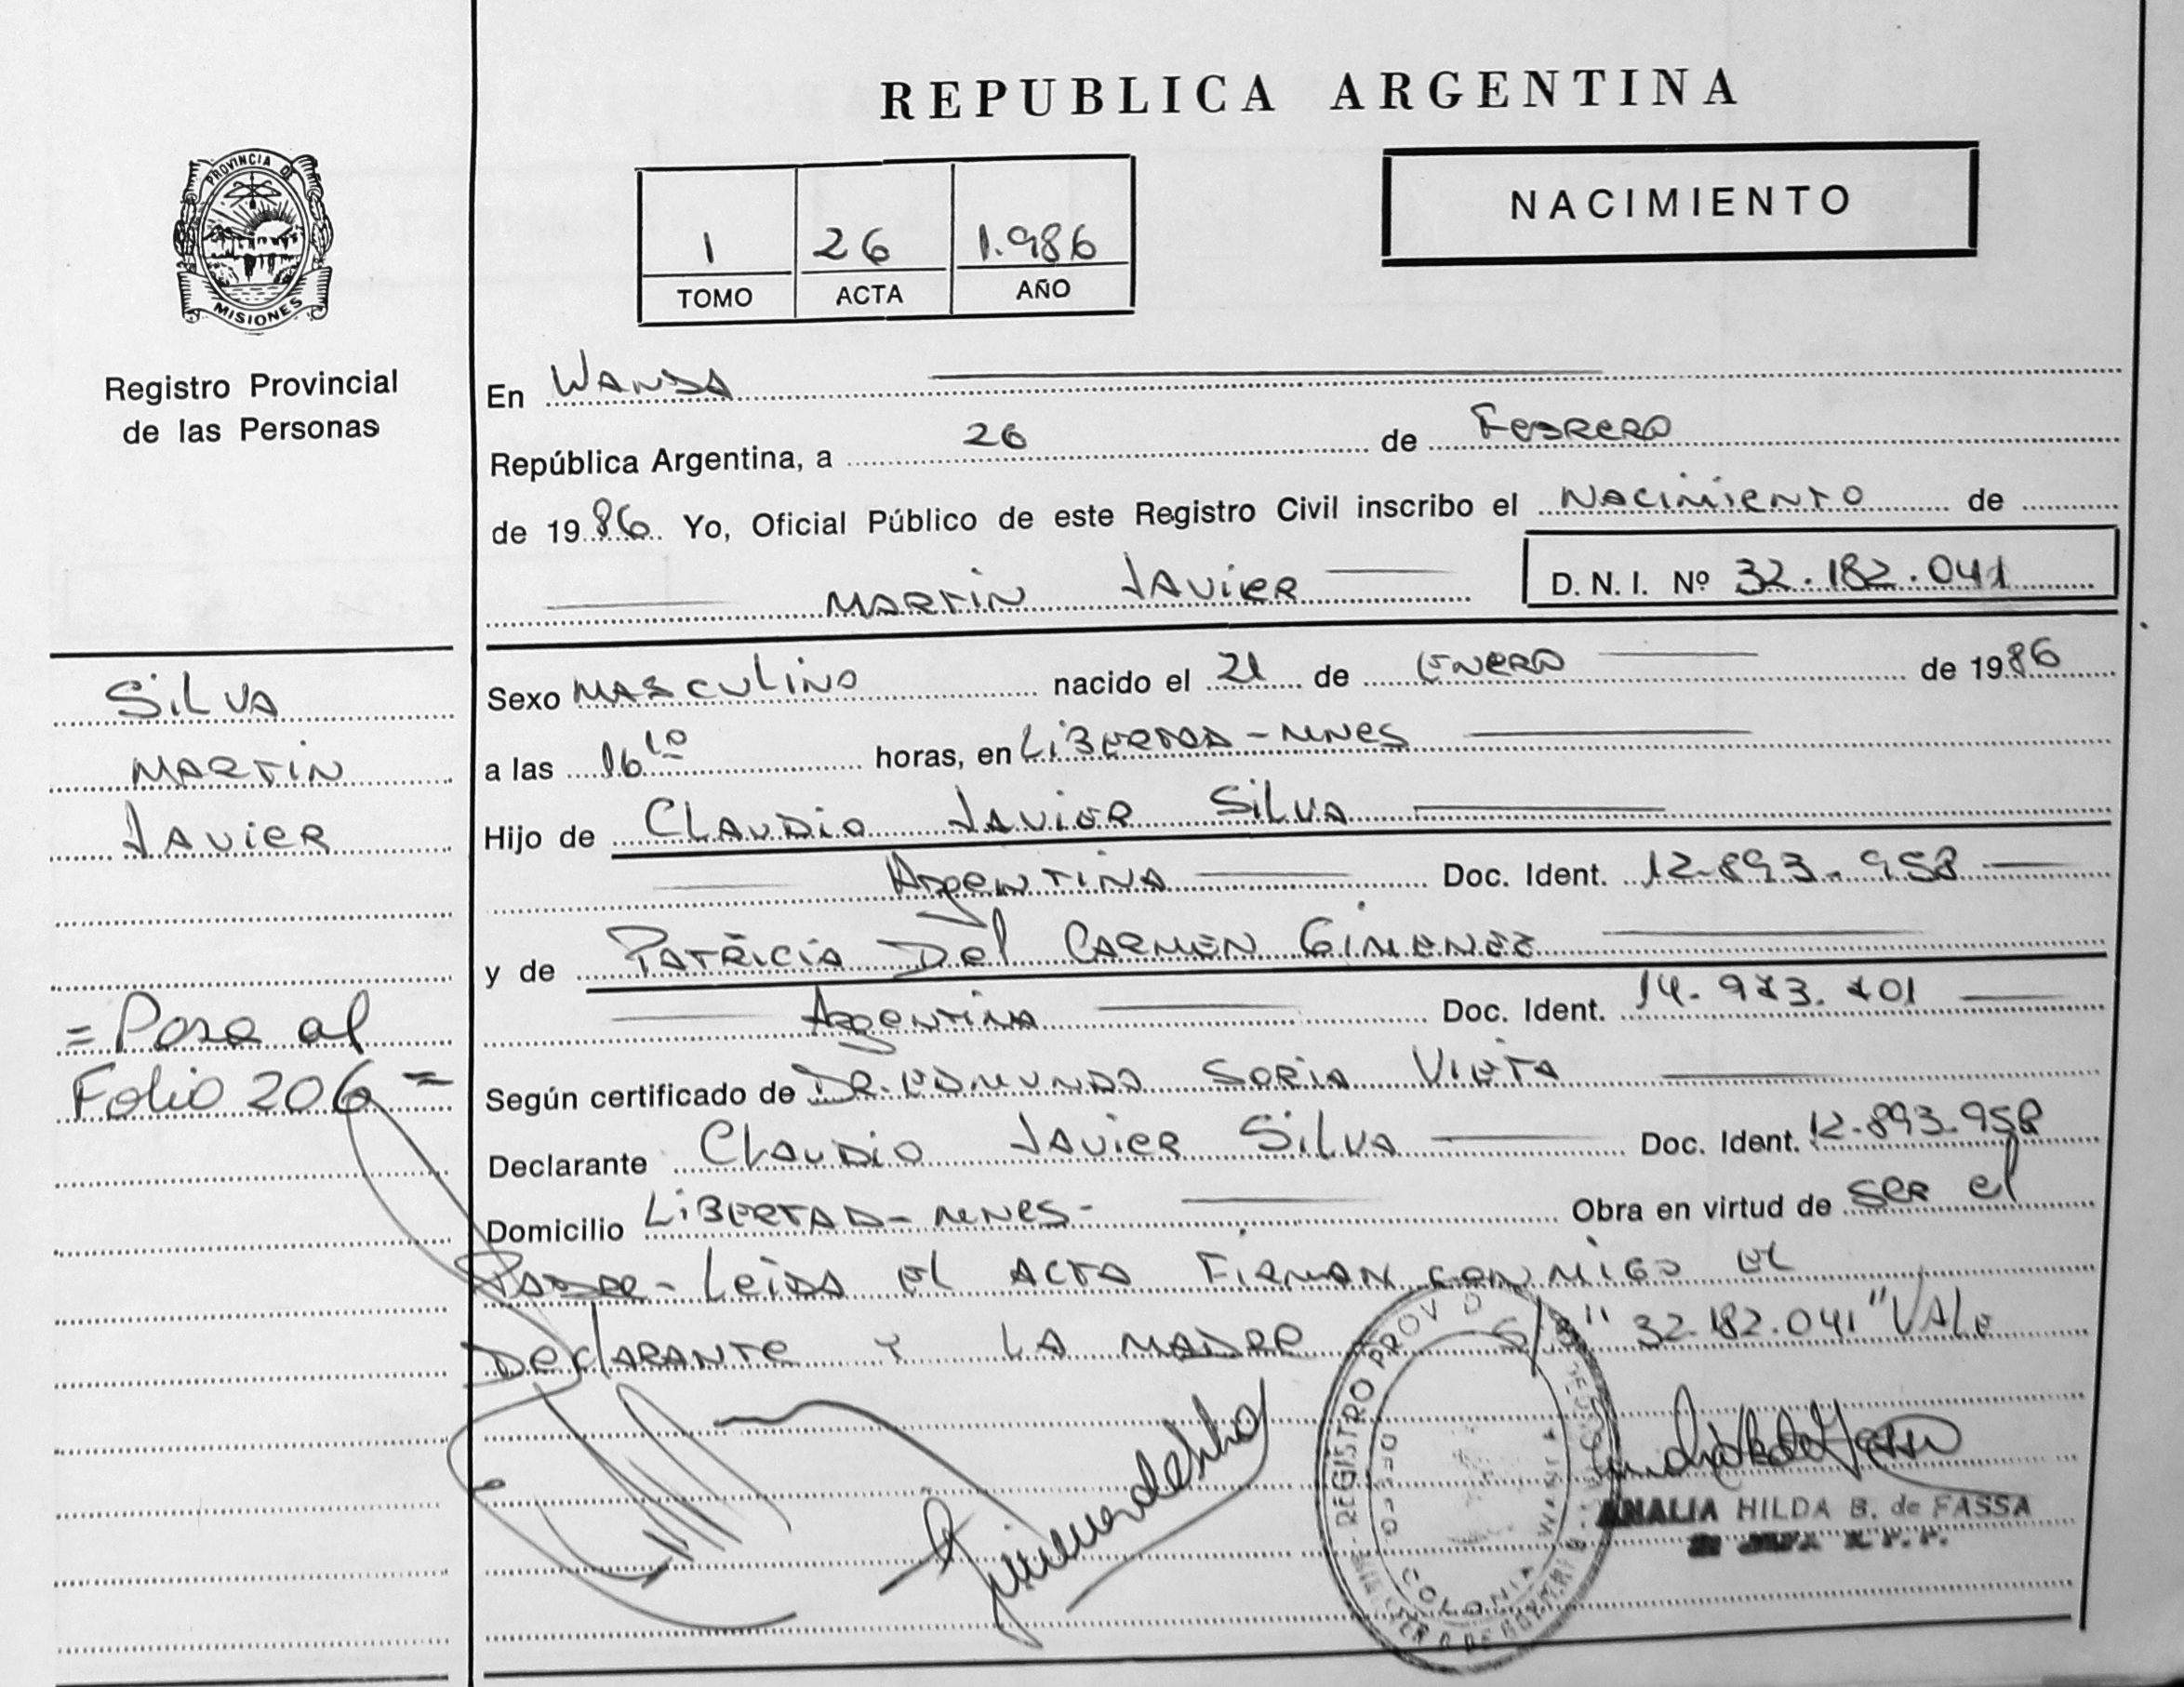 REPUBLICA ARGENTINA
PROVINCIA DE
MISIONES
Registro Provincial
de las Personas
1 26 1.986
TOMO ACTA AÑO
NACIMIENTO
En WANDA
República Argentina, a 26 de Febrero
de 1986 Yo, Oficial Público de este Registro Civil inscribo el Nacimiento de
MARTIN JAVIER D. N. I. Nº 32.182.041
SILVA
MARTIN
JAVIER
= Pasa al
Folio 206 =
Sexo MASCULINO nacido el 21 de ENERO de 1986
a las 16 10 horas, en LIBERTAD - MNES
Hijo de CLAUDIO JAVIER SILVA
Argentina Doc. Ident. 12.893.958
y de PATRICIA Del CARMEN GIMENEZ
Argentina Doc. Ident. 14.973.101
Según certificado de DR. EDMUNDO SORIA VIETA
Declarante CLAUDIO JAVIER SILVA Doc. Ident. 12.893.958
Domicilio LIBERTAD - MNES - Obra en virtud de ser el
PADRE - Leida el ACTA FIRMAN CONMIGO EL
DECLARANTE Y LA MADRE S/R "32.182.041" VALE
Gimenez de Silva
REGISTRO PROV D
COLONIA WANDA
ANALIA HILDA B. de FASSA